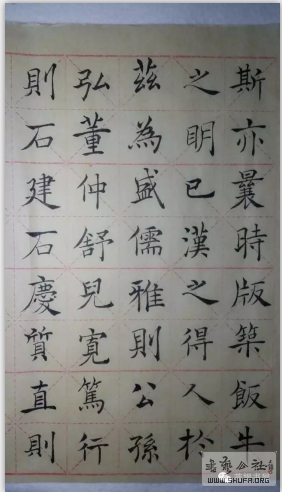 斯亦曩時版築飯牛
之明已漢之得人於
茲為盛儒雅則公孫
弘董仲舒兒寬篤行
則石建石慶質直則
WWW.SHUFA.ORG